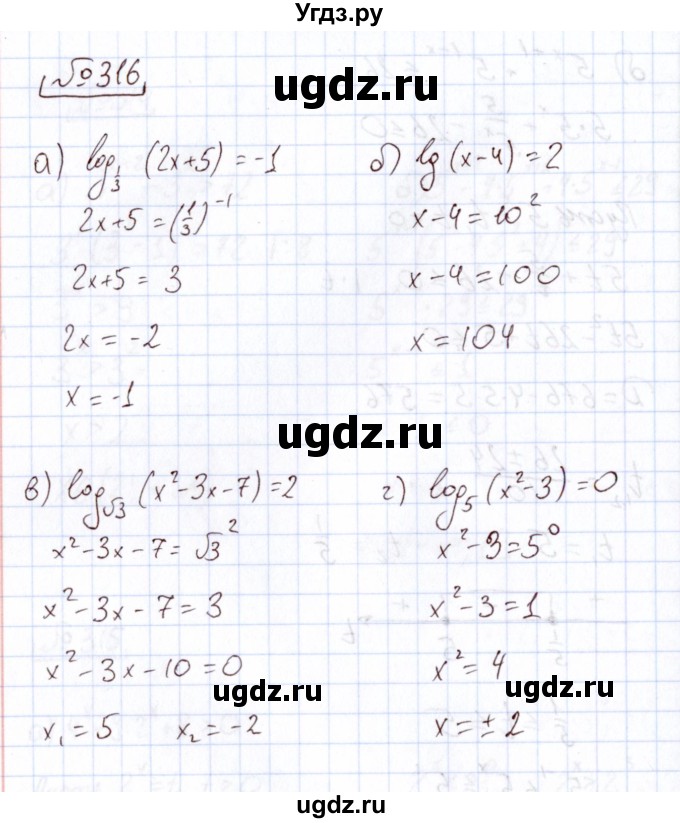 Угдз.ру
№316
ugdz.ru
а) log_{1/3} (2x+5) = -1
2x+5 = (1/3)^{-1}
2x+5 = 3
2x = -2
x = -1
б) lg (x-4) = 2
x-4 = 10^2
x-4 = 100
x = 104
ugdz.ru
ugdz.ru
в) log_{√3} (x²-3x-7) = 2
x²-3x-7 = √3²
x²-3x-7 = 3
x²-3x-10 = 0
x₁ = 5 x₂ = -2
г) log₅ (x²-3) = 0
x²-3 = 5⁰
x²-3 = 1
x² = 4
x = ±2
ugdz.ru
ugdz.ru
ugdz.ru